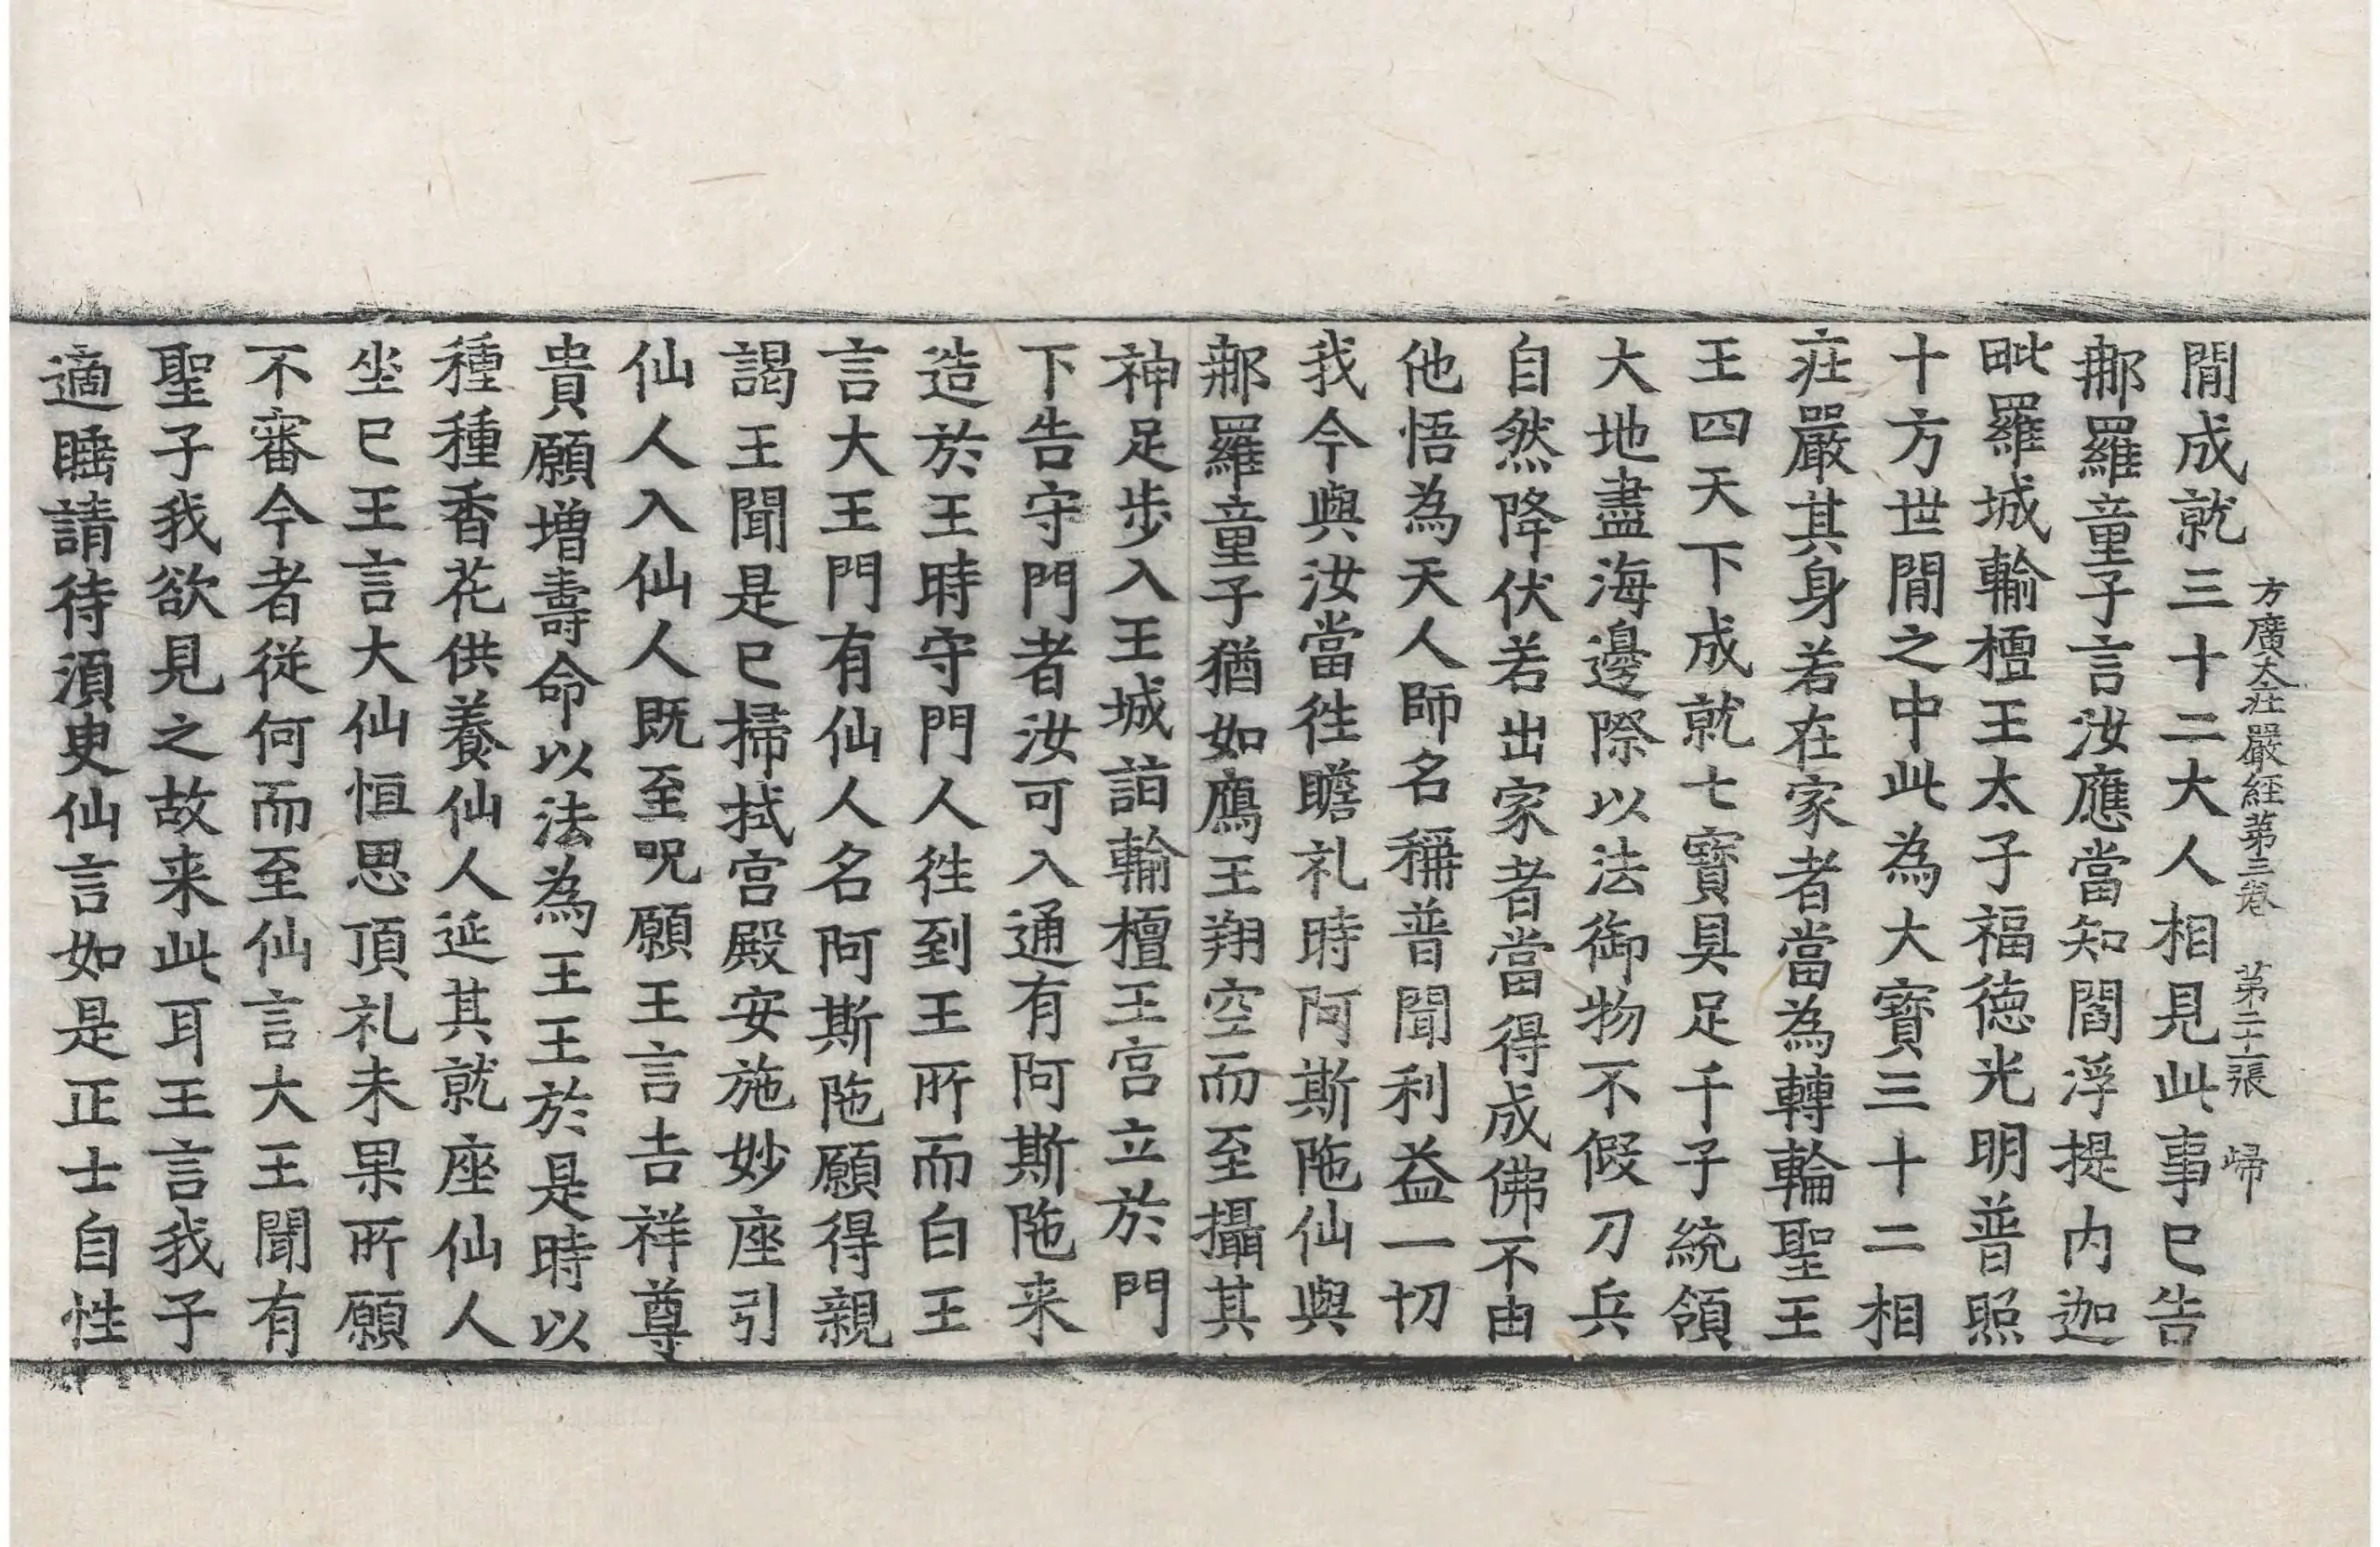 方廣大莊嚴經第三卷 第二十張 歸
閒成就三十二大人相見此事已告
那羅童子言汝應當知閻浮提内迦
毗羅城輸檀王太子福德光明普照
十方世閒之中此為大寶三十二相
莊嚴其身若在家者當為轉輪聖王
王四天下成就七寶具足千子統領
大地盡海邊際以法御物不假刀兵
自然降伏若出家者當得成佛不由
他悟為天人師名稱普聞利益一切
我今與汝當往瞻礼時阿斯陁仙與
那羅童子猶如鴈王翔空而至攝其
神足步入王城詣輸檀王宫立於門
下告守門者汝可入通有阿斯陁来
造於王時守門人往到王所而白王
言大王門有仙人名阿斯陁願得親
謁王聞是已掃拭宫殿安施妙座引
仙人入仙人既至呪願王言吉祥尊
貴願增壽命以法為王王於是時以
種種香花供養仙人延其就座仙人
坐已王言大仙恒思頂礼未果所願
不審今者從何而至仙言大王聞有
聖子我欲見之故来此耳王言我子
適睡請待湏臾仙言如是正士自性